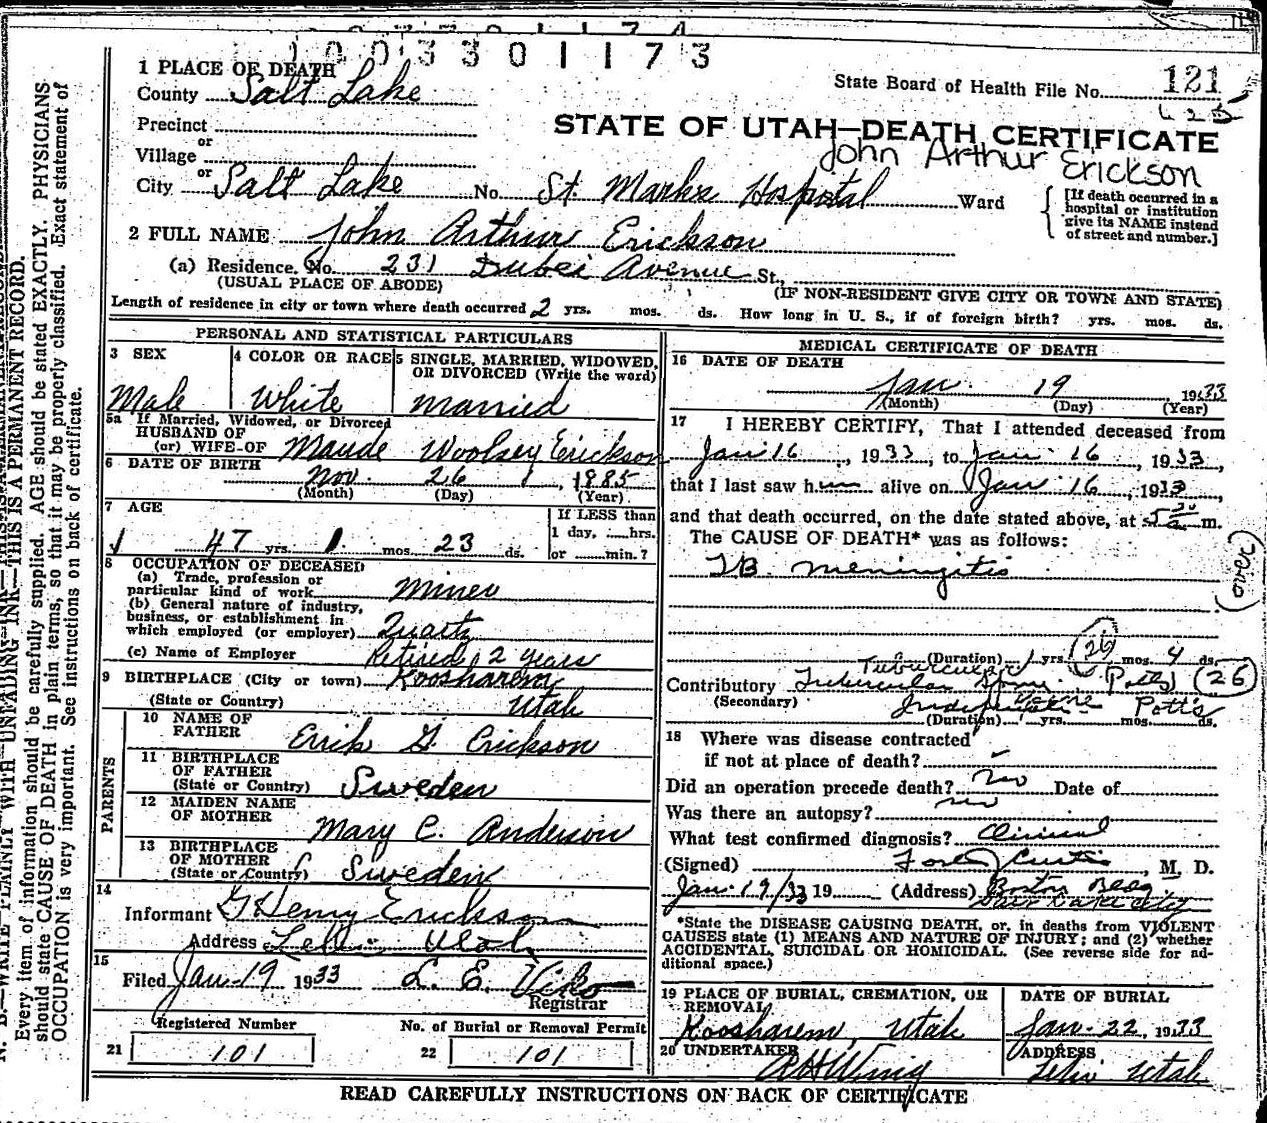 1003301173
1 PLACE OF DEATH
County Salt Lake
State Board of Health File No. 121
Precinct
or
Village
or
City Salt Lake No. St. Marks Hospital Ward
STATE OF UTAH—DEATH CERTIFICATE
John Arthur Erickson
[If death occurred in a
hospital or institution
give its NAME instead
of street and number.]
2 FULL NAME John Arthur Erickson
(a) Residence. No. 231 Avenue St.,
(USUAL PLACE OF ABODE)
(IF NON-RESIDENT GIVE CITY OR TOWN AND STATE)
Length of residence in city or town where death occurred 2 yrs. mos. ds. How long in U. S., if of foreign birth? yrs. mos. ds.
PERSONAL AND STATISTICAL PARTICULARS
3 SEX
Male
4 COLOR OR RACE
White
5 SINGLE, MARRIED, WIDOWED,
OR DIVORCED (Write the word)
Married
5a If Married, Widowed, or Divorced
HUSBAND OF
(or) WIFE OF Maude Woolsey Erickson
6 DATE OF BIRTH
Nov. 26, 1885
(Month) (Day) (Year)
7 AGE
47 yrs. 1 mos. 23 ds.
If LESS than
1 day, ......hrs.
or ......min.?
8 OCCUPATION OF DECEASED
(a) Trade, profession or
particular kind of work Miner
(b) General nature of industry,
business, or establishment in
which employed (or employer) Quartz
(c) Name of Employer Retired 2 years
9 BIRTHPLACE (City or town) Koosharem
(State or Country) Utah
PARENTS
10 NAME OF
FATHER Errik G. Erickson
11 BIRTHPLACE
OF FATHER
(State or Country) Sweden
12 MAIDEN NAME
OF MOTHER Mary C. Anderson
13 BIRTHPLACE
OF MOTHER
(State or Country) Sweden
14
Informant G Henry Erickson
Address Lehi Utah
15
Filed Jan-19 1933 L. E. Viko
Registrar
Registered Number
21 101
No. of Burial or Removal Permit
22 101
MEDICAL CERTIFICATE OF DEATH
16 DATE OF DEATH
Jan. 19 1933
(Month) (Day) (Year)
17 I HEREBY CERTIFY, That I attended deceased from
Jan 16, 1933, to Jan. 16, 1933,
that I last saw him alive on Jan. 16, 1933,
and that death occurred, on the date stated above, at 5 a m.
The CAUSE OF DEATH* was as follows:
TB. meningitis
(over)
(Duration) yrs. mos. 4 ds.
26
Contributory Tubercular Spine (Potts) (26)
(Secondary)
Potts
(Duration) 1 yrs. mos. ds.
18 Where was disease contracted
if not at place of death?
Did an operation precede death? no Date of
Was there an autopsy? no
What test confirmed diagnosis? Clinical
(Signed) Curtis, M. D.
Jan. 19/33 19 (Address) Boston Bldg
Salt Lake City
*State the DISEASE CAUSING DEATH, or, in deaths from VIOLENT
CAUSES state (1) MEANS AND NATURE OF INJURY; and (2) whether
ACCIDENTAL, SUICIDAL OR HOMICIDAL. (See reverse side for ad-
ditional space.)
19 PLACE OF BURIAL, CREMATION, OR
REMOVAL
Koosharem, Utah
DATE OF BURIAL
Jan. 22, 1933
20 UNDERTAKER
A H Wing
ADDRESS
Lehi Utah
READ CAREFULLY INSTRUCTIONS ON BACK OF CERTIFICATE
N. B.—WRITE PLAINLY WITH UNFADING INK—THIS IS A PERMANENT RECORD.
Every item of information should be carefully supplied. AGE should be stated EXACTLY. PHYSICIANS
should state CAUSE OF DEATH in plain terms, so that it may be properly classified. Exact statement of
OCCUPATION is very important. See instructions on back of certificate.